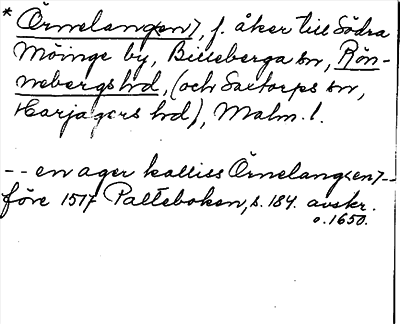 * Örnelang(en), f. åker till Södra
Möinge by, Billeberga sn, Rön-
nebergs hd, (och Saxtorps sn,
Harjagers hd), Malm. l.
-- en ager kalliss Örnelang<en> --
före 1517 Palteboken, s. 184. avskr.
o. 1650.